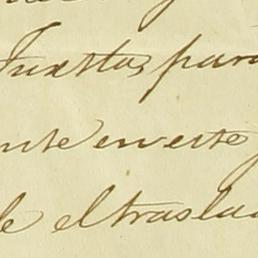 Juxtta, para
nte en este
de el traslad